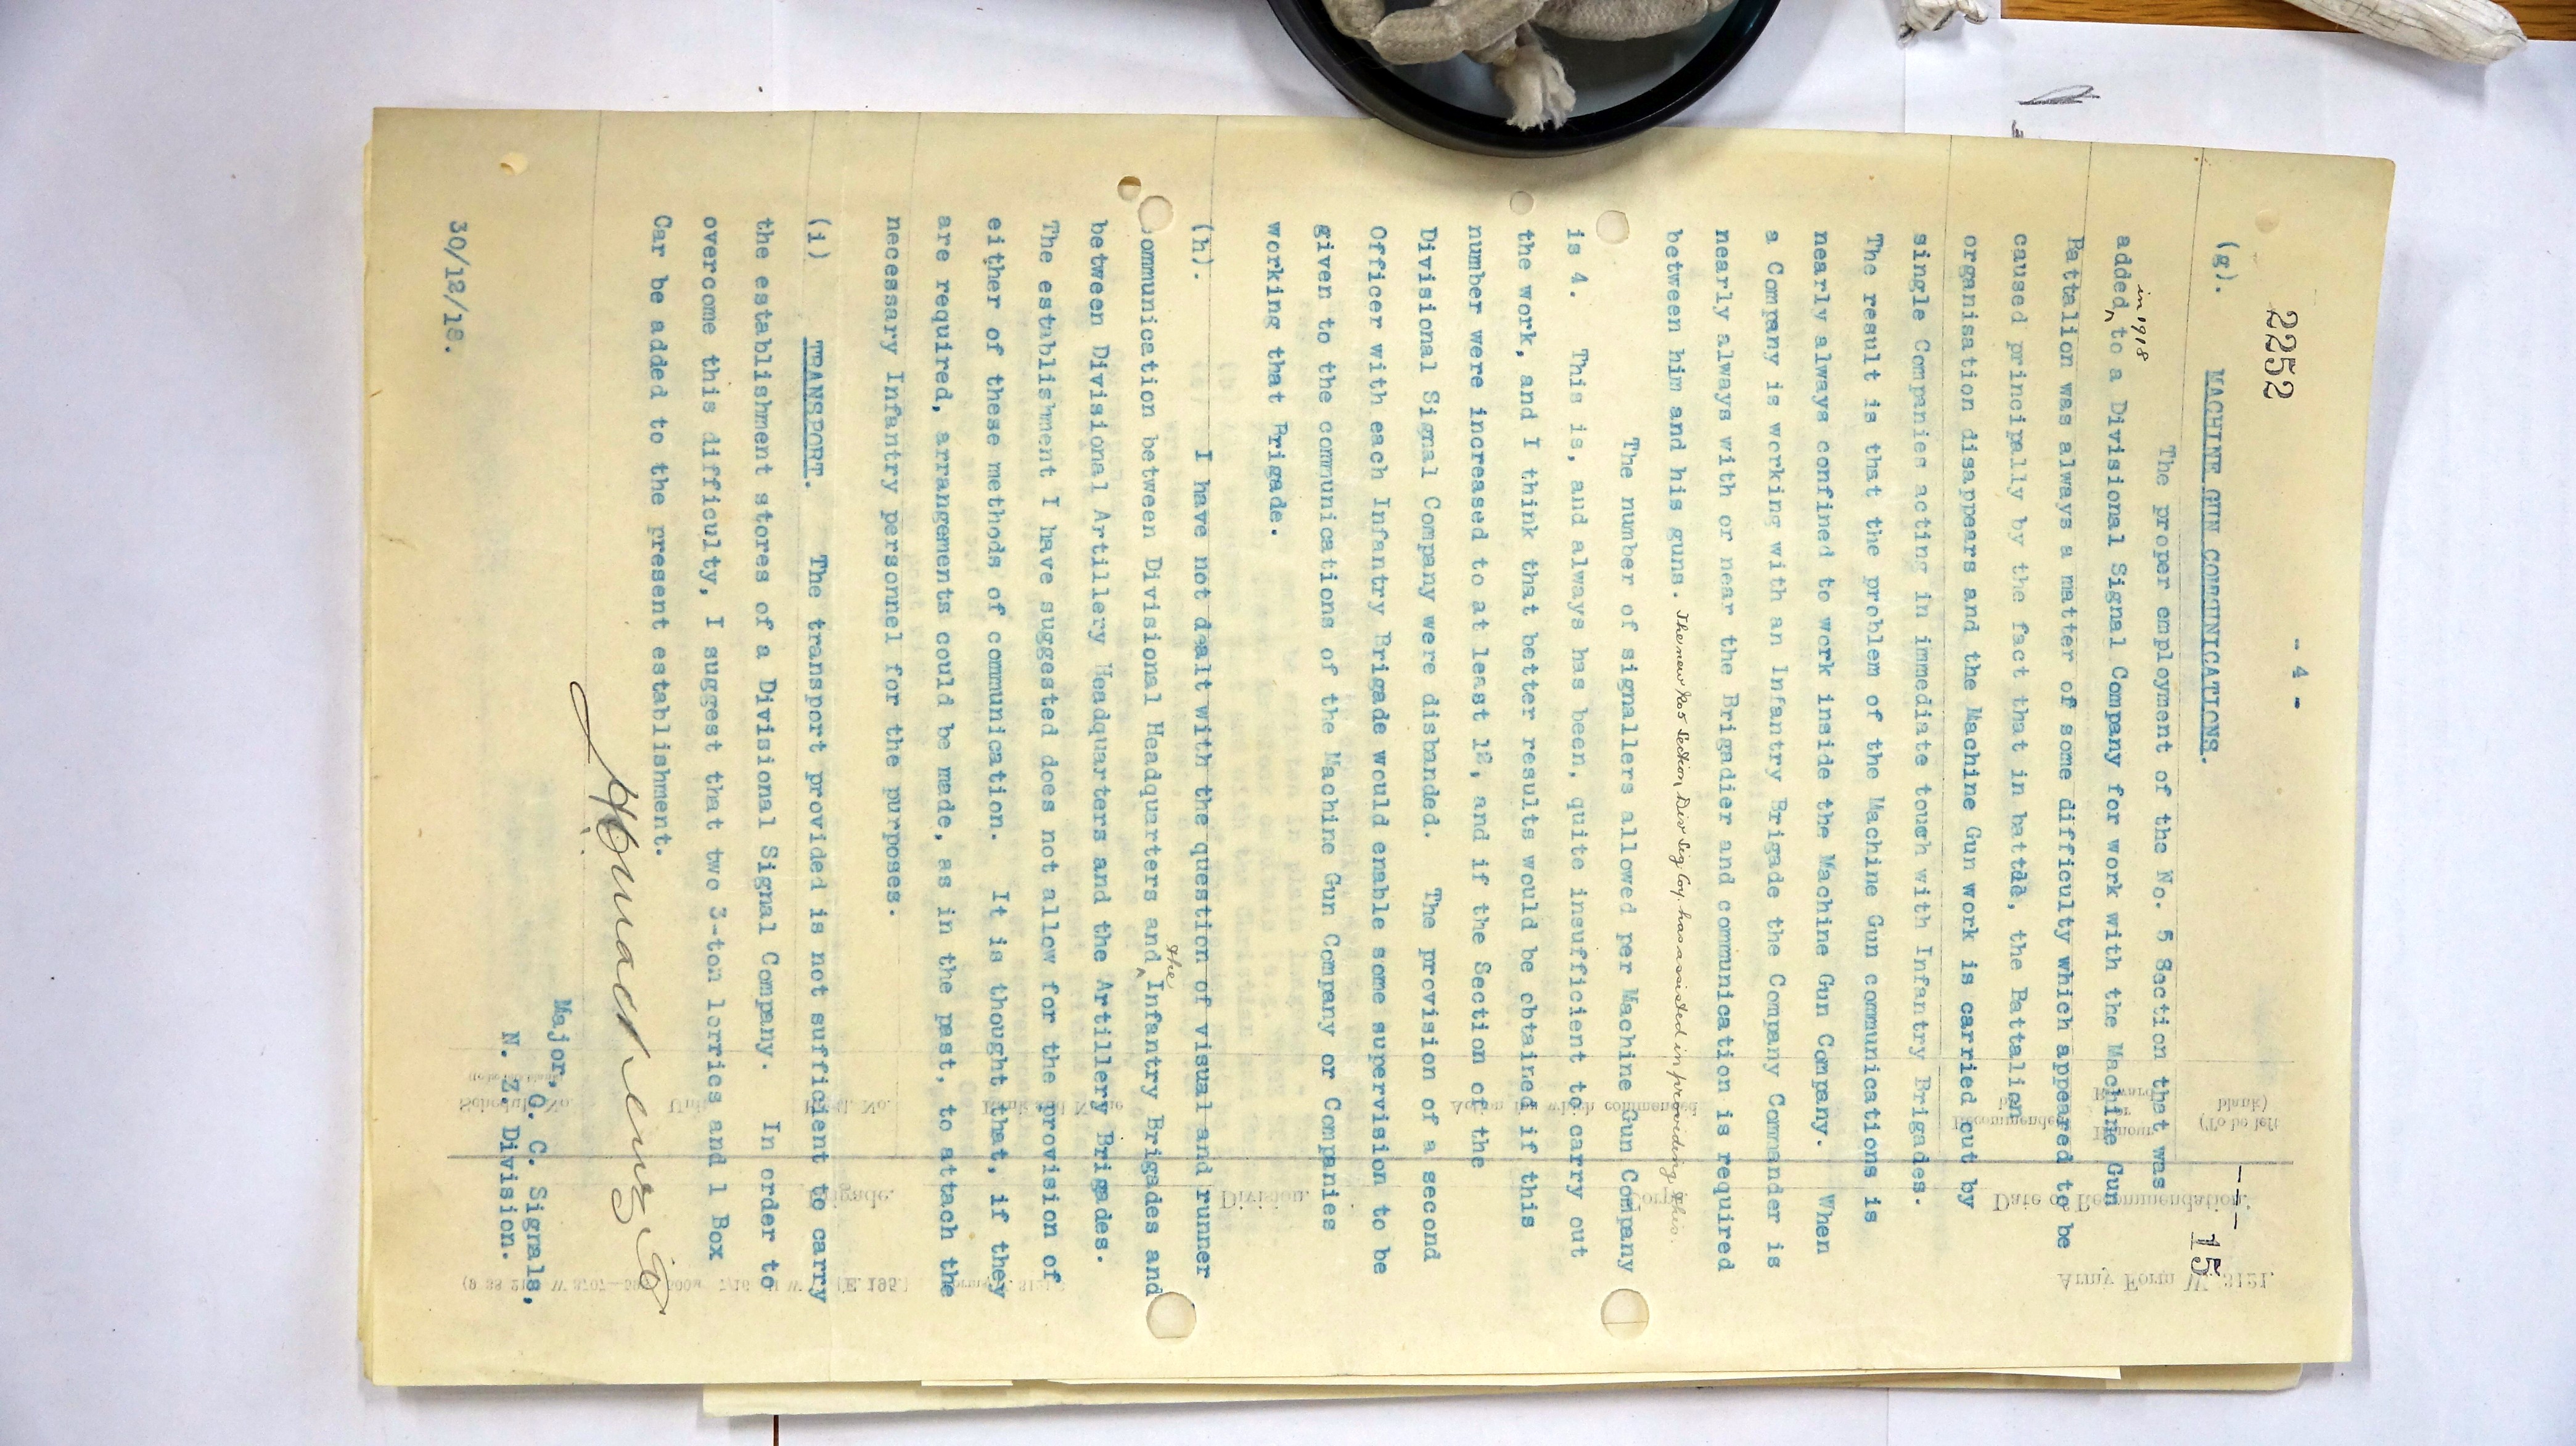 - 4 -
2252
--- 15
(g). MACHINE GUN COMMUNICATIONS.
The proper employment of the No. 5 Section that was
in 1918
added to a Divisional Signal Company for work with the Machine Gun
Battalion was always a matter of some difficulty which appeared to be
caused principally by the fact that in battle, the Battalion
organisation disappears and the Machine Gun work is carried out by
single Companies acting in immediate touch with Infantry Brigades.
The result is that the problem of the Machine Gun communications is
nearly always confined to work inside the Machine Gun Company. When
a Company is working with an Infantry Brigade the Company Commander is
nearly always with or near the Brigadier and communication is required
between him and his guns. The new No 5 Section, Div Sig Coy. has assisted in providing this.
The number of signallers allowed per Machine Gun Company
is 4. This is, and always has been, quite insufficient to carry out
the work, and I think that better results would be obtained if this
number were increased to at least 12, and if the Section of the
Divisional Signal Company were disbanded. The provision of a second
Officer with each Infantry Brigade would enable some supervision to be
given to the communications of the Machine Gun Company or Companies
working that Brigade.
(h). I have not dealt with the question of visual and runner
the
communication between Divisional Headquarters and Infantry Brigades and
between Divisional Artillery Headquarters and the Artillery Brigades.
The establishment I have suggested does not allow for the provision of
either of these methods of communication. It is thought that, if they
are required, arrangements could be made, as in the past, to attach the
necessary Infantry personnel for the purposes.
(i) TRANSPORT. The transport provided is not sufficient to carry
the establishment stores of a Divisional Signal Company. In order to
overcome this difficulty, I suggest that two 3-ton lorries and 1 Box
Car be added to the present establishment.
Major,
O. C. Signals,
N. Z. Division.
30/12/18.
Army Form W. 3121.
Date of Recommendation.
Corps.
Division.
Brigade.
(To be left
blank)
Schedule No.
Unit